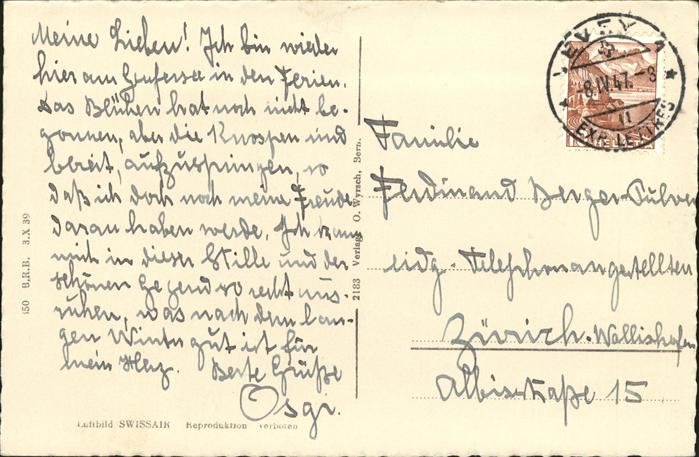 Meine Lieben! Ich bin wieder
hier am Genfersee in den Ferien.
Das Blühen hat noch nicht be-
gonnen, aber die Knospen sind
bereit, aufzuspringen, so
daß ich doch noch meine Freude
daran haben werde. Ich kann
mich in dieser Stille und der
schönen Gegend so recht aus-
ruhen, was nach dem lan-
gen Winter gut ist für
mein Herz. Beste Grüße
Osgi.
Luftbild SWISSAIR Reproduktion verboten
150 B.R.B. 3.X 39
2183 Verlag O. Wyrsch, Bern.
VEVEY 1
-8.IV.47.-8
11
EXP. LETTRES
HELVETIA
Familie
Ferdinand Berger-Pulver
eidg. Telephonangestellten
Zürich-Wollishofen
Albisstraße 15